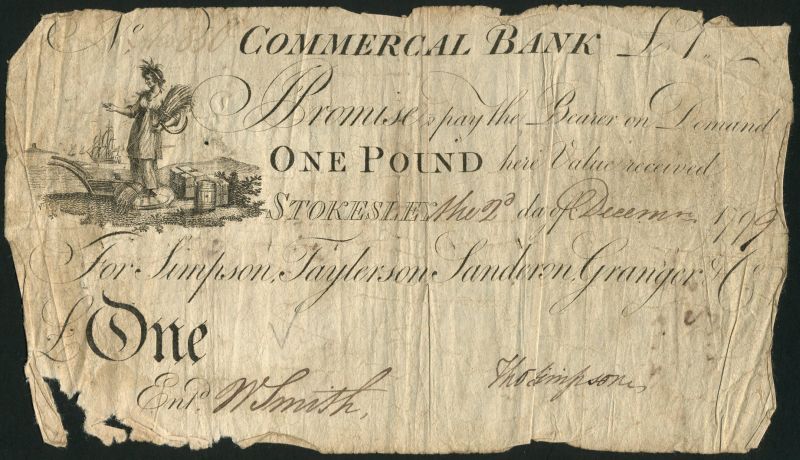 No. COMMERCAL BANK £1.
I Promise to pay the Bearer on Demand
ONE POUND here Value received
STOKESLEY the 2d day of Decemr 1799
For Simpson, Taylerson, Sanderon, Granger & Co
£ One
Entd. W Smith, Tho Simpson